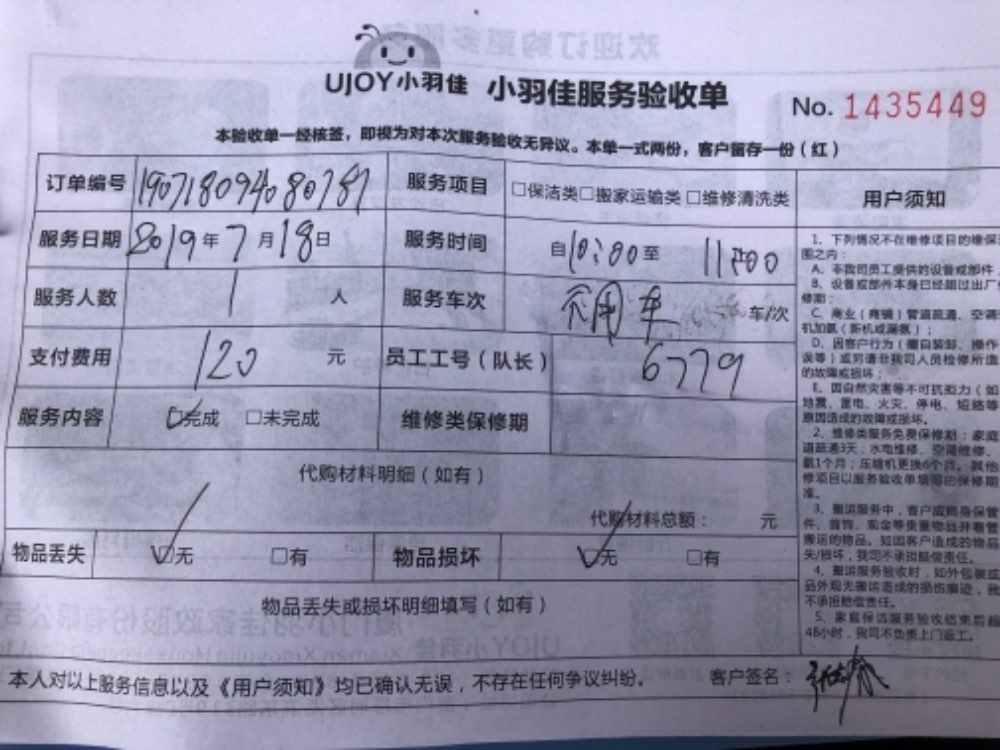 UJOY小羽佳 小羽佳服务验收单
No. 1435449
本验收单一经核签，即视为对本次服务验收无异议。本单一式两份，客户留存一份（红）
订单编号 190718094080787 服务项目 □保洁类□搬家运输类 □维修清洗类
服务日期 2019年7月18日 服务时间 自10:00至 11:00
服务人数 1 人 服务车次 不用车 车/次
支付费用 120 元 员工工号（队长） 6779
服务内容 ☑完成 □未完成 维修类保修期
代购材料明细（如有）
代购材料总额： 元
物品丢失 ☑无 □有 物品损坏 ☑无 □有
物品丢失或损坏明细填写（如有）
本人对以上服务信息以及《用户须知》均已确认无误，不存在任何争议纠纷。 客户签名：
用户须知
1、下列情况不在维修项目的维保
围之内：
A、非我司员工提供的设备或部件
B、设备或部件本身已经超过出厂
修期；
C、商业（商铺）管道疏通、空调
机加氨（新机或漏氨）；
D、因客户行为（擅自装卸、操作
误等）或另请非我司人员检修所造
的故障或损坏；
E、因自然灾害等不可抗力（如
地震、雷电、火灾、停电、短路等
原因造成的故障或损坏。
2、维修类服务免费保修期：家庭
道疏通3天；水电维修、空调维修、
氨1个月；压缩机更换6个月。其他
修项目以服务验收单填写的保修期
准。
3、搬运服务中，客户应随身保管
件、首饰、现金等贵重物品并看管
搬运的物品。如因客户造成的物品
失/损坏，我司不承担赔偿责任。
4、搬运服务验收时，如外包装或
品外观无搬运造成的损伤痕迹，我
不承担赔偿责任。
5、家庭保洁服务验收结束后超
48小时，我司不负责上门返工。